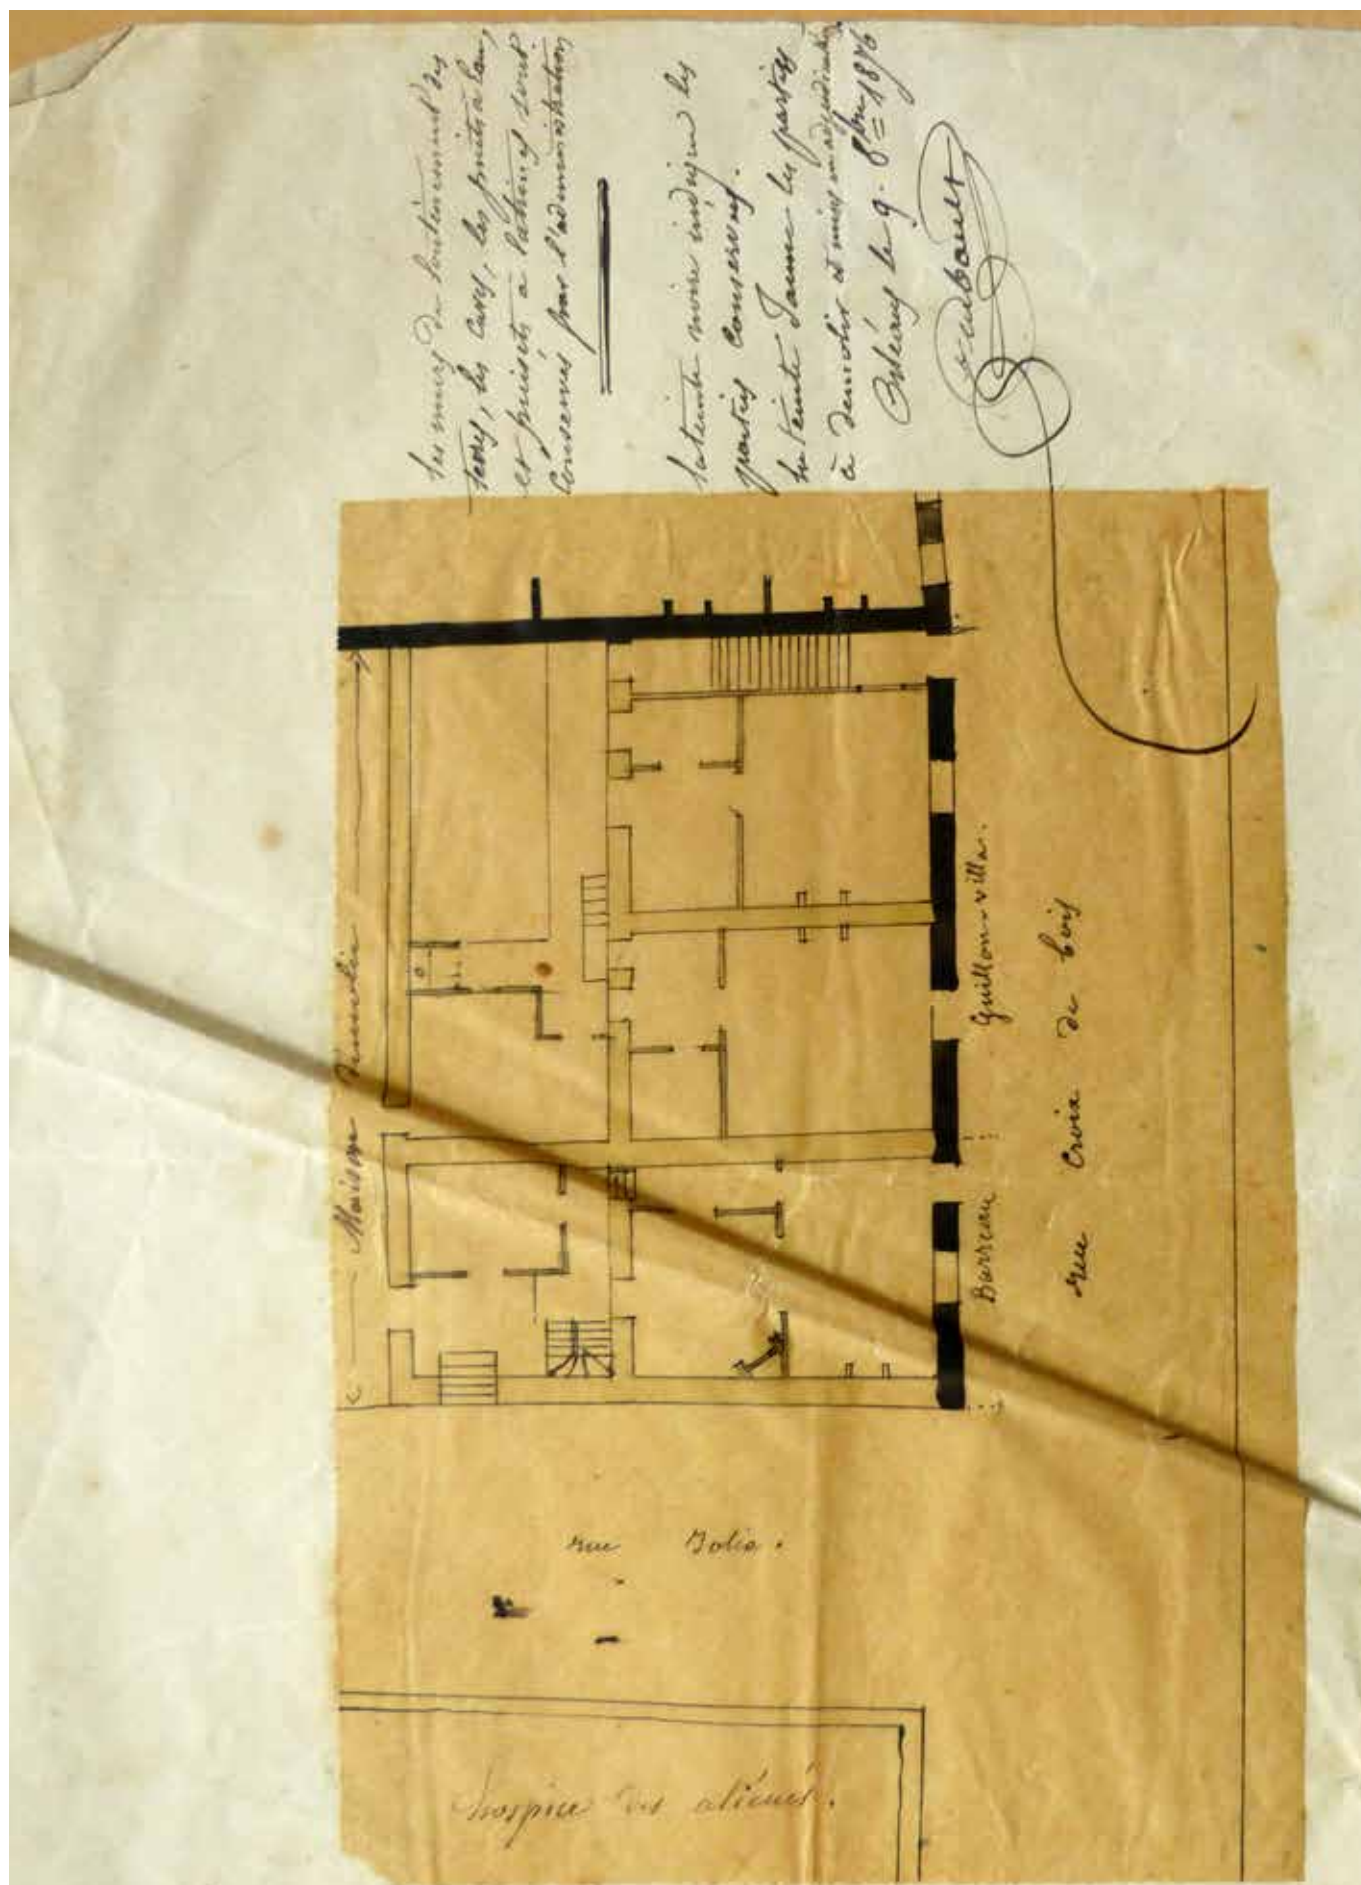 Les murs de soutènement des
terres, les caves, les puits à eau,
et puisets à latrines sont
conservés par l'administration
la teinte noire indique les
parties conservées.
la teinte Jaune les parties
à demolir et mises en adjudication
Orléans le 9. 8bre 1876
Maison démolie
Guillon-villa.
Barreau
rue Croix de bois
rue Solis.
hospice des aliénés.